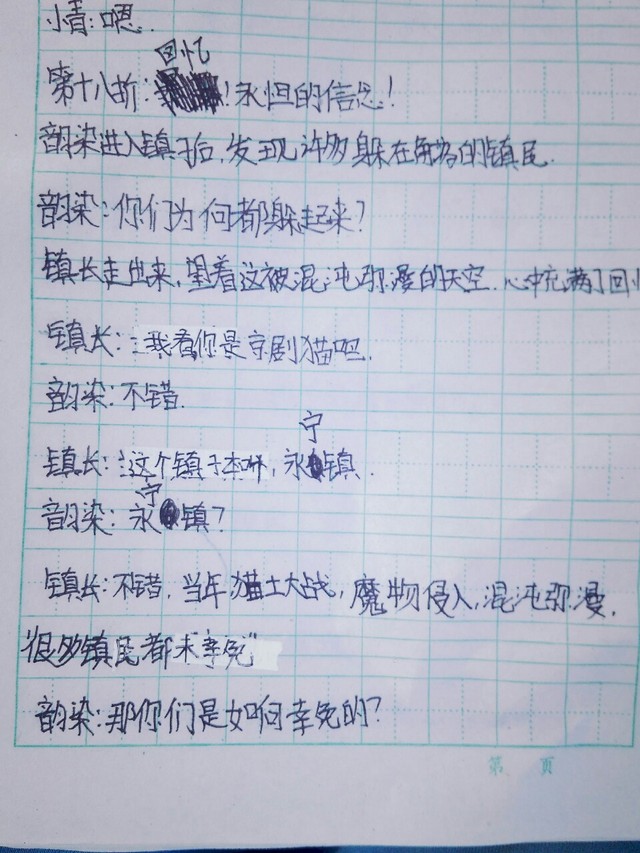 小青:嗯.
回忆
第十八折:!永恒的信念!
韵染进入镇子后,发现许多躲在角落的镇民.
韵染:你们为何都躲起来?
镇长走出来,望着这被混沌弥漫的天空.心中充满了回忆
镇长:我看你是京剧猫吧.
韵染:不错.
宁
镇长:这个镇子本叫,永镇.
宁
韵染:永镇?
镇长:不错.当年猫土大战,魔物侵入,混沌弥漫.
很多镇民都未"幸免"
韵染:那你们是如何幸免的?
第 页